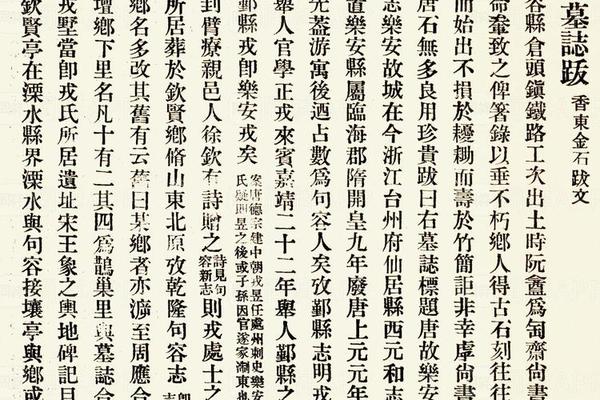 墓誌跋 香東金石跋文
容縣倉頭鎮鐵路工次出土時阮盦爲匋齋尚書
命鴌致之俾箸錄以垂不朽鄉人得古石刻往往
而始出不損於耰耡而壽於竹簡詎非幸虖尚書
唐石無多良用珍貴跋曰右墓誌標題唐故樂安
志樂安故城在今浙江台州府仙居縣西元和志
置樂安縣屬臨海郡隋開皇九年廢唐上元元年
先葢游寓後迺占數爲句容人矣攷鄞縣志明戎
舉人官學正戎來賓嘉靖二十二年舉人鄞縣之
鄞縣戎卽樂安戎矣 案唐德宗建中朝戎昱任處州刺史樂安
氏疑卽昱之後或子孫因官遂家淛東也
到臂療親邑人徐欽有詩贈之 詩見句
容新志 則戎處士之
所居葬於欽賢鄉脩山東北原攷乾隆句容志 卽
鄉名多改其舊有云舊曰某鄉者亦瀛至周應合
壇鄉下里名凡十有二其四爲鵲巢里與墓誌合
戎墅當卽戎氏所居遺址宋王象之輿地碑記曰
欽賢亭在溧水縣界溧水與句容接壤亭與鄉或